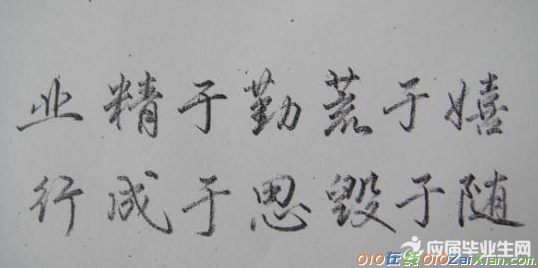 业精于勤荒于嬉
行成于思毁于随
应届毕业生网
010在线010ZaiXian.com